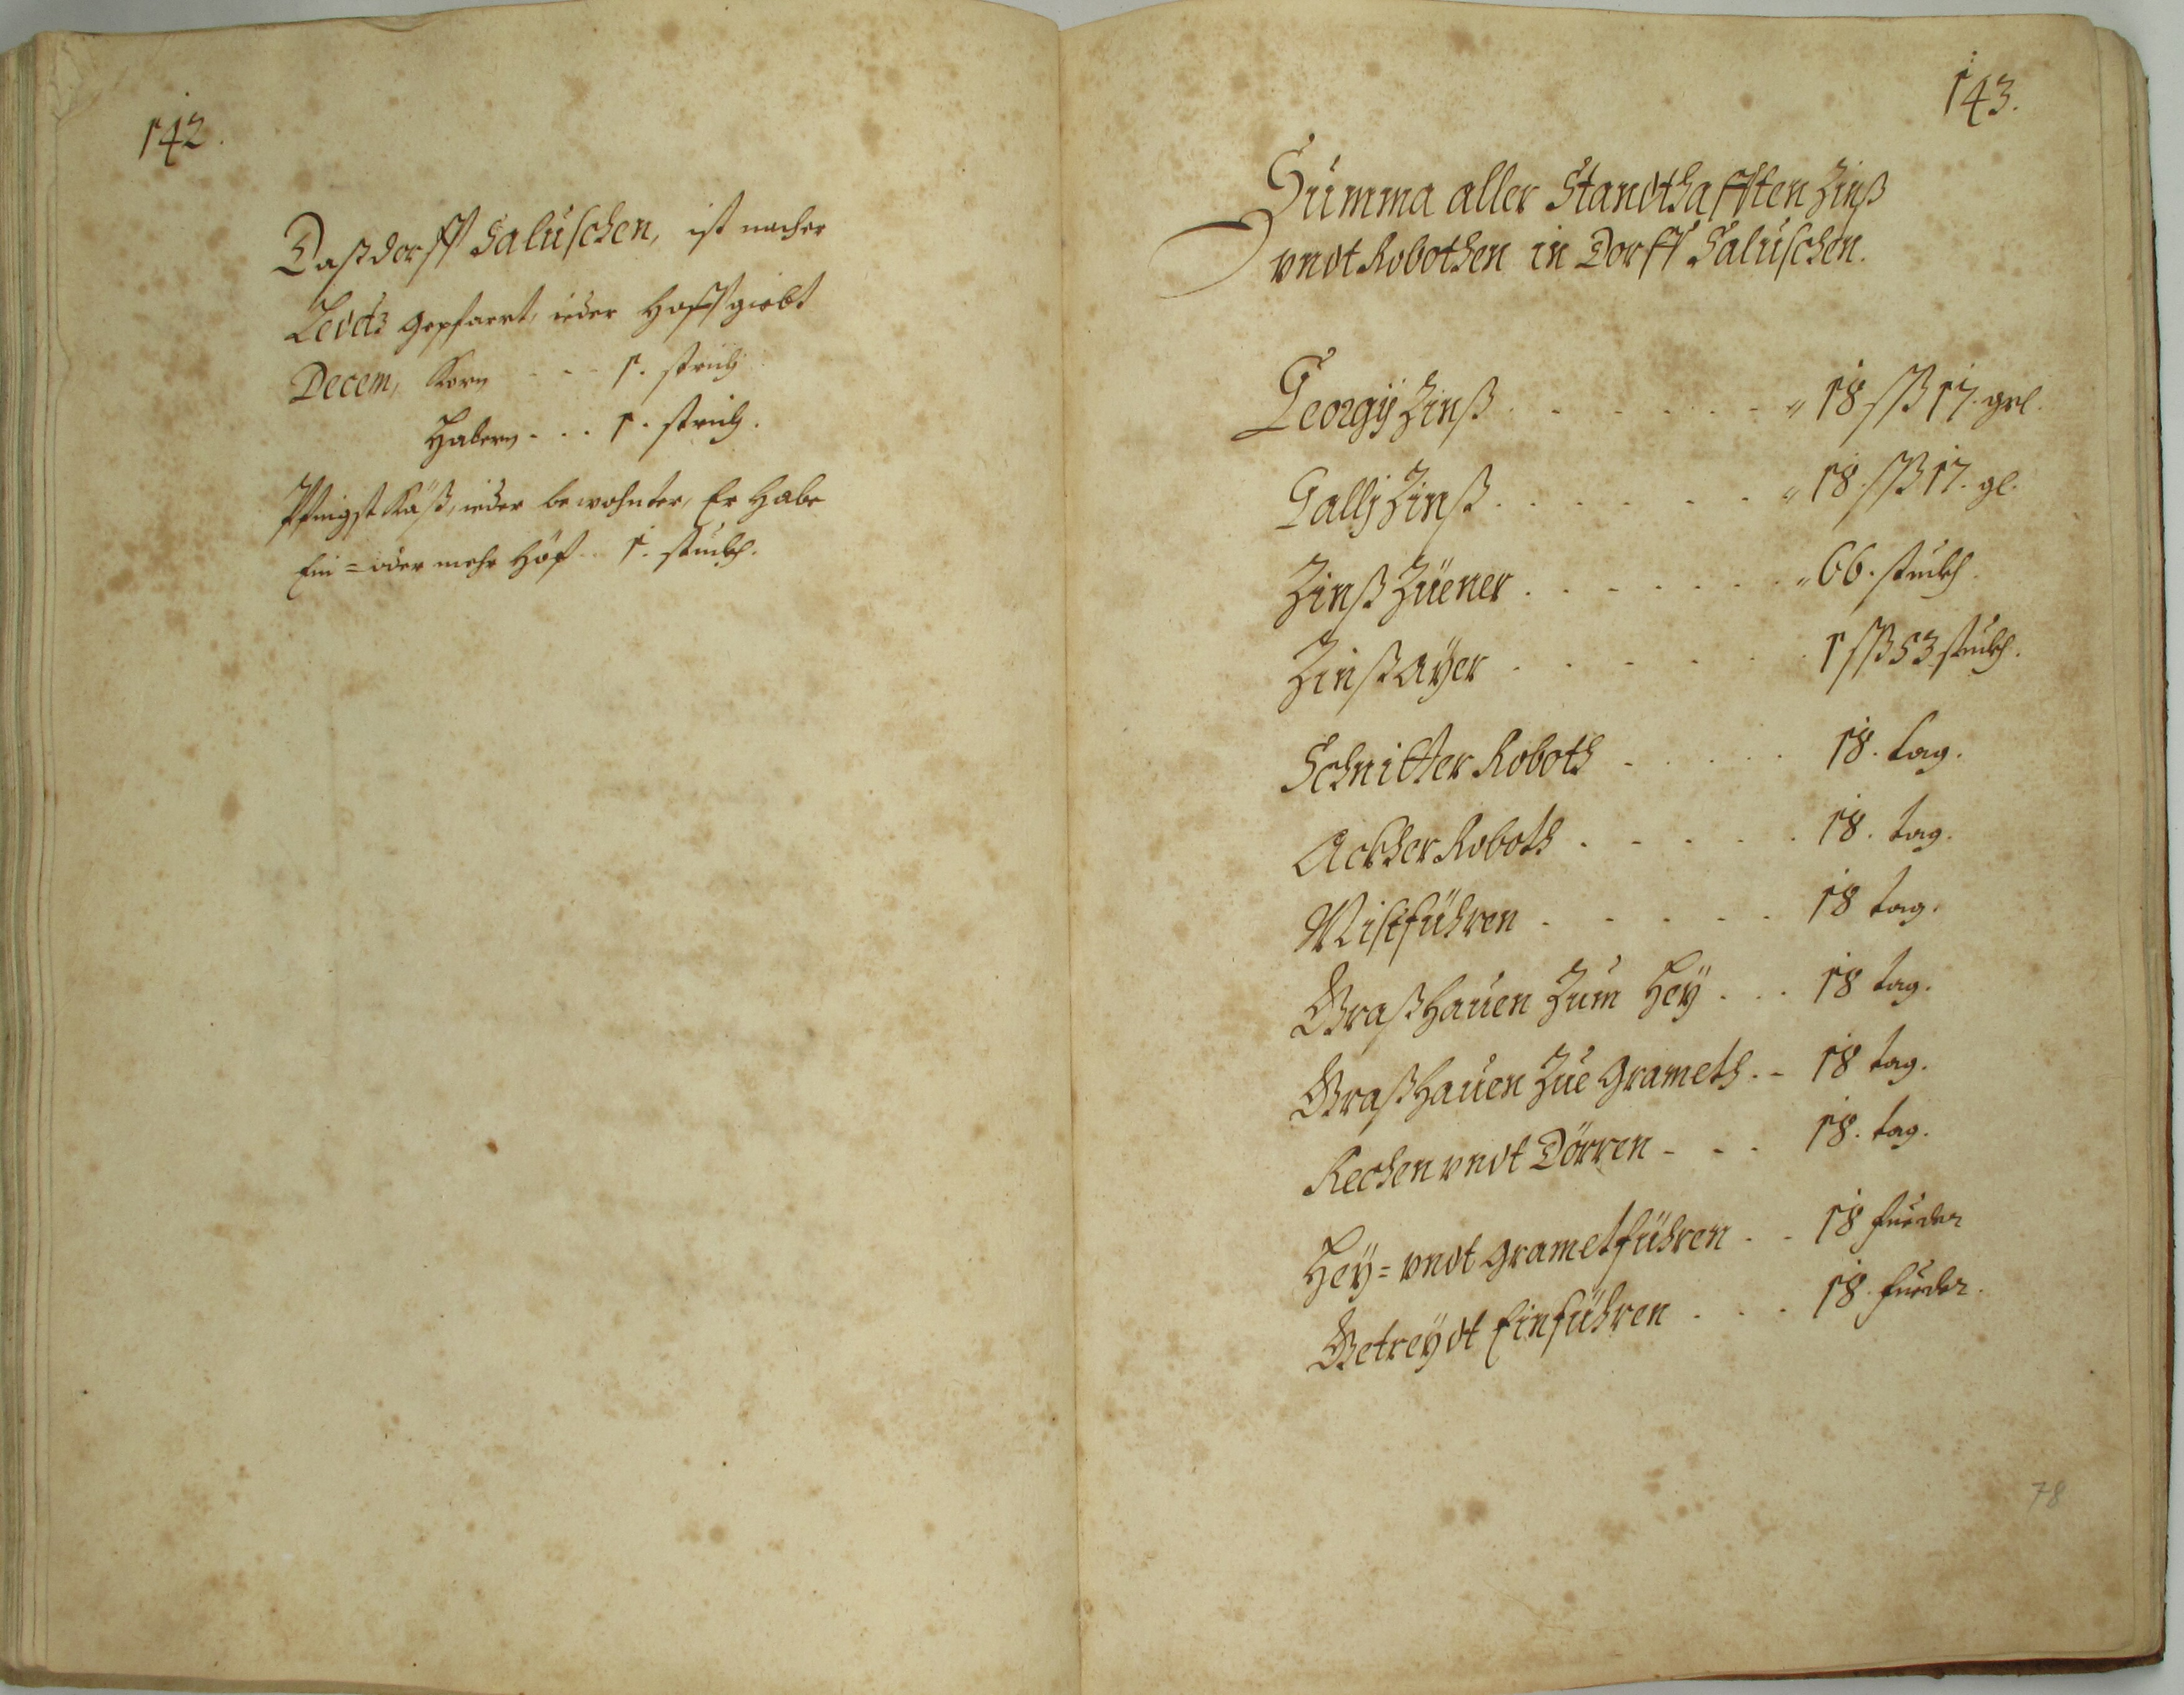 142.
Daß dorff Saluschen, ist nacher
Leditz gepfarrt, ieder Hoff giebt
Decem, Korn - - - 1. strich
Habern - - - 1. strich.
Pfingst Käß, ieder bewohnter, Er Habe
Ein = oder mehr Höf - - 1. stuckh.
143.
Summa aller Standthafften Zinß
vndt Robothen in Dorff Saluschen.
Georgÿ Zinß - - - - - - " 18 ßß 17. grl.
Gallj Zinß - - - - - - " 18. ßß 17. gl.
Zinß Hüener - - - - - - " 66. stuckh.
Zinß Aÿer - - - - - - 1 ßß 53 stuckh.
Schnitter Roboth - - - - - 18. tag.
Ackher Roboth - - - - - - 18. tag.
Mistführen - - - - - - 18 tag.
Graßhauen Zum Heÿ - - - 18 tag.
Graßhauen Zue Grameth - - 18 tag.
Rechen vndt Dörren - - - 18. tag.
Heÿ = vndt Grametführen - - 18 fueder
Getreÿdt Einführen - - - 18. fueder.
78